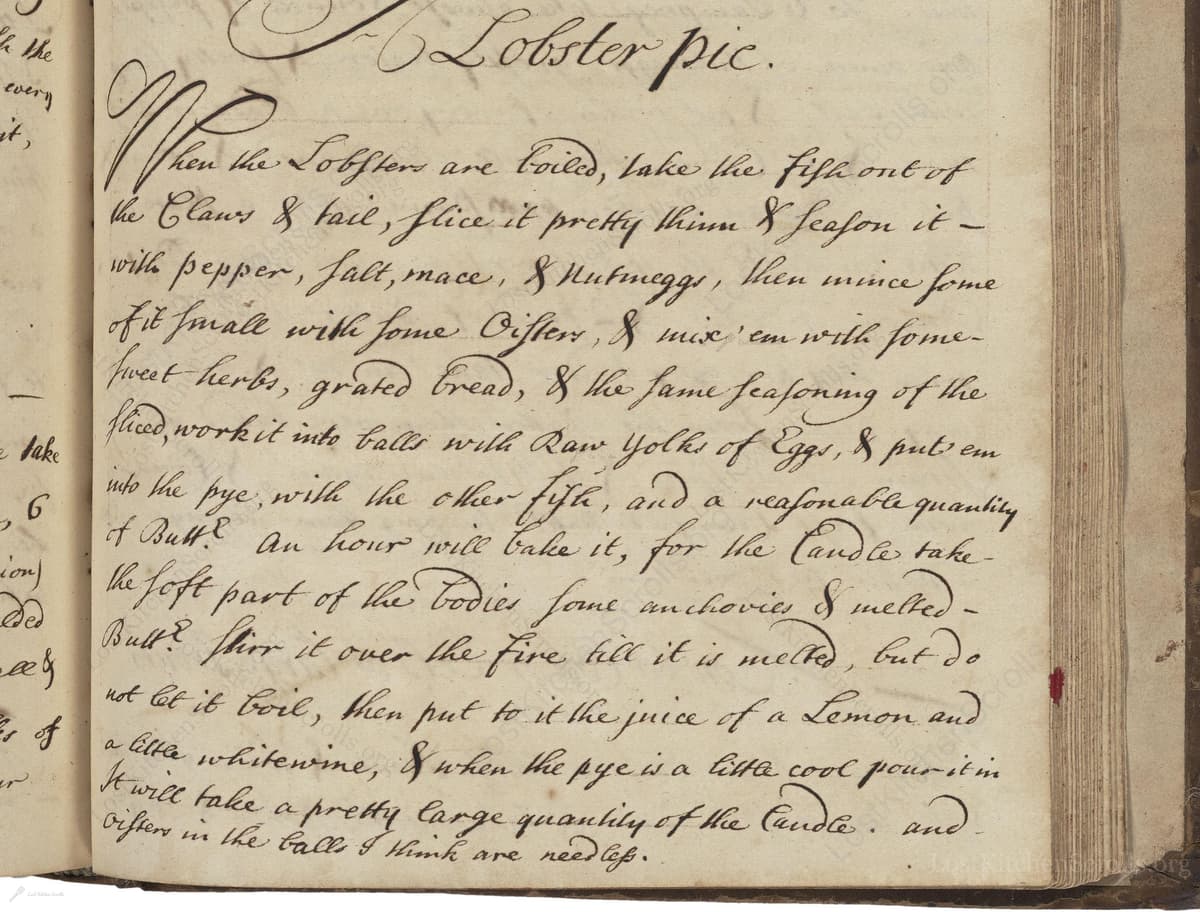 A
Lobster pie.
When the Lobſters are boiled, take the fiſh out of
the Claws & tail, ſlice it pretty thinn & ſeaſon it -
with pepper, ſalt, mace, & Nutmeggs, then mince ſome
of it ſmall with ſome Oiſters, & mix 'em with ſome-
ſweet herbs, grated bread, & the ſame ſeaſoning of the
ſliced, work it into balls with Raw yolks of Eggs, & put 'em
into the pye, with the other fiſh, and a reaſonable quantity
of Buttr. An hour will bake it, for the Caudle take-
the ſoft part of the bodies ſome anchovies & melted-
Buttr. ſtirr it over the fire till it is melted, but do
not let it boil, then put to it the juice of a Lemon and
a little whitewine, & when the pye is a little cool pour it in
It will take a pretty large quantity of the Caudle. and-
oiſters in the balls I think are needleſs.
the
every
it,
take
, 6
ion)
ded
&
of